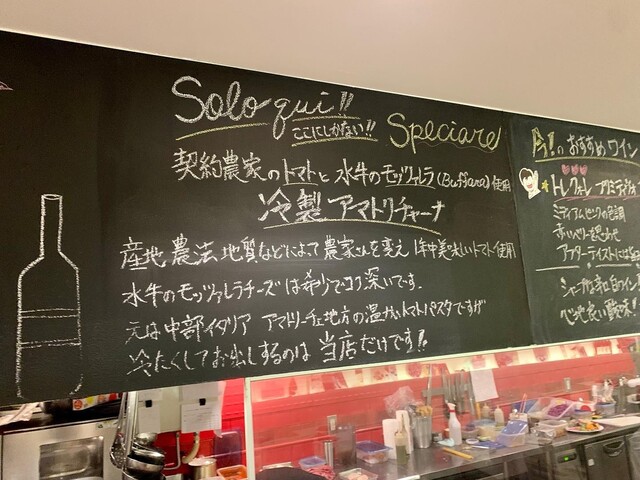 Solo qui!!
ここにしかない!!
Speciare
契約農家のトマトと水牛のモッツァレラ(Buffara)使用
冷製アマトリチャーナ
産地、農法、地質などによって農家さんを変え1年中美味しいトマト使用
水牛のモッツァレラチーズは希少でコク深いです。
元は中部イタリア アマトリーチェ地方の温かいトマトパスタですが
冷たくしてお出しするのは当店だけです!!
今!のおすすめワイン
トレクオーレ プリミティーヴォ
ミディアム
赤い
アフターテイストには
シャープな辛口白ワイン!
心地良い酸味!